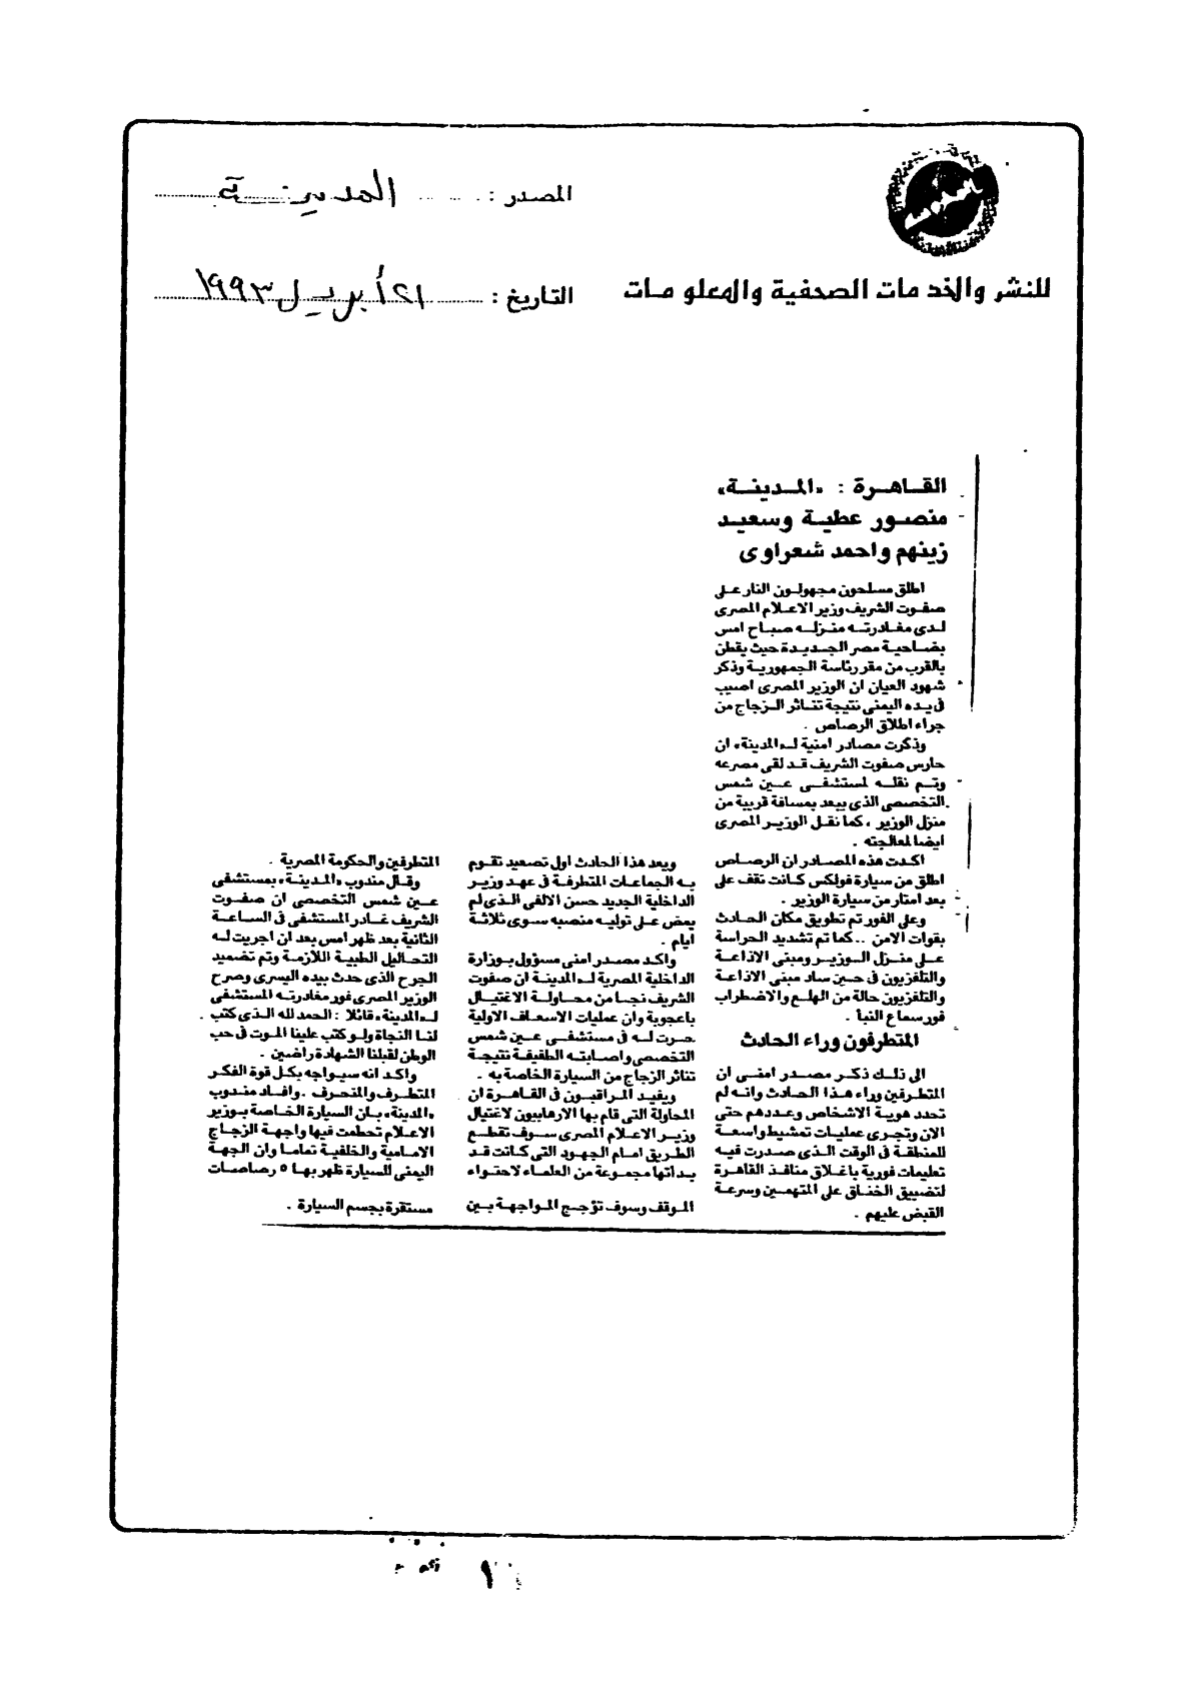 المصدر : المدينة
للنشر والخدمات الصحفية والمعلومات
التاريخ : ٢١ أبريل ١٩٩٣
القاهرة : «المدينة»
منصور عطية وسعيد
زينهم واحمد شعراوى
اطلق مسلحون مجهولون النار على
صفوت الشريف وزير الاعلام المصرى
لدى مغادرته منزله صباح امس
بضاحية مصر الجديدة حيث يقطن
بالقرب من مقر رئاسة الجمهورية وذكر
شهود العيان ان الوزير المصرى اصيب
فى يده اليمنى نتيجة تناثر الزجاج من
جراء اطلاق الرصاص .
وذكرت مصادر امنية لـ«المدينة» ان
حارس صفوت الشريف قد لقى مصرعه
وتم نقله لمستشفى عين شمس
التخصصى الذى يبعد بمسافة قريبة من
منزل الوزير ، كما نقل الوزير المصرى
ايضا لمعالجته .
اكدت هذه المصادر ان الرصاص
اطلق من سيارة فولكس كانت تقف على
بعد امتار من سيارة الوزير .
وعلى الفور تم تطويق مكان الحادث
بقوات الامن .. كما تم تشديد الحراسة
على منزل الوزير ومبنى الاذاعة
والتلفزيون فى حين ساد مبنى الاذاعة
والتلفزيون حالة من الهلع والاضطراب
فور سماع النبأ .
المتطرفون وراء الحادث
الى ذلك ذكر مصدر امنى ان
المتطرفين وراء هذا الحادث وانه لم
تحدد هوية الاشخاص وعددهم حتى
الان وتجرى عمليات تمشيط واسعة
للمنطقة فى الوقت الذى صدرت فيه
تعليمات فورية باغلاق منافذ القاهرة
لتضييق الخناق على المتهمين وسرعة
القبض عليهم .
ويعد هذا الحادث اول تصعيد تقوم
به الجماعات المتطرفة فى عهد وزير
الداخلية الجديد حسن الالفى الذى لم
يمض على توليه منصبه سوى ثلاثة
ايام .
واكد مصدر امنى مسؤول بوزارة
الداخلية المصرية لـ«المدينة ان صفوت
الشريف نجا من محاولة الاغتيال
باعجوبة وان عمليات الاسعاف الاولية
جرت له فى مستشفى عين شمس
التخصصى واصابته الطفيفة نتيجة
تناثر الزجاج من السيارة الخاصة به .
ويفيد المراقبون فى القاهرة ان
المحاولة التى قام بها الارهابيون لاغتيال
وزير الاعلام المصرى سوف تقطع
الطريق امام الجهود التى كانت قد
بدأتها مجموعة من العلماء لاحتواء
الموقف وسوف تؤجج المواجهة بين
المتطرفين والحكومة المصرية .
وقال مندوب «المدينة» بمستشفى
عين شمس التخصصى ان صفوت
الشريف غادر المستشفى فى الساعة
الثانية بعد ظهر امس بعد ان اجريت له
التحاليل الطبية اللازمة وتم تضميد
الجرح الذى حدث بيده اليسرى وصرح
الوزير المصرى فور مغادرته المستشفى
لـ«المدينة» قائلا : الحمد لله الذى كتب
لنا النجاة ولو كتب علينا الموت فى حب
الوطن لقبلنا الشهادة راضين .
واكد انه سيواجه بكل قوة الفكر
المتطرف والمنحرف . وافاد مندوب
«المدينة» بان السيارة الخاصة بوزير
الاعلام تحطمت فيها واجهة الزجاج
الامامية والخلفية تماما وان الجهة
اليمنى للسيارة ظهر بها ٥ رصاصات
مستقرة بجسم السيارة .